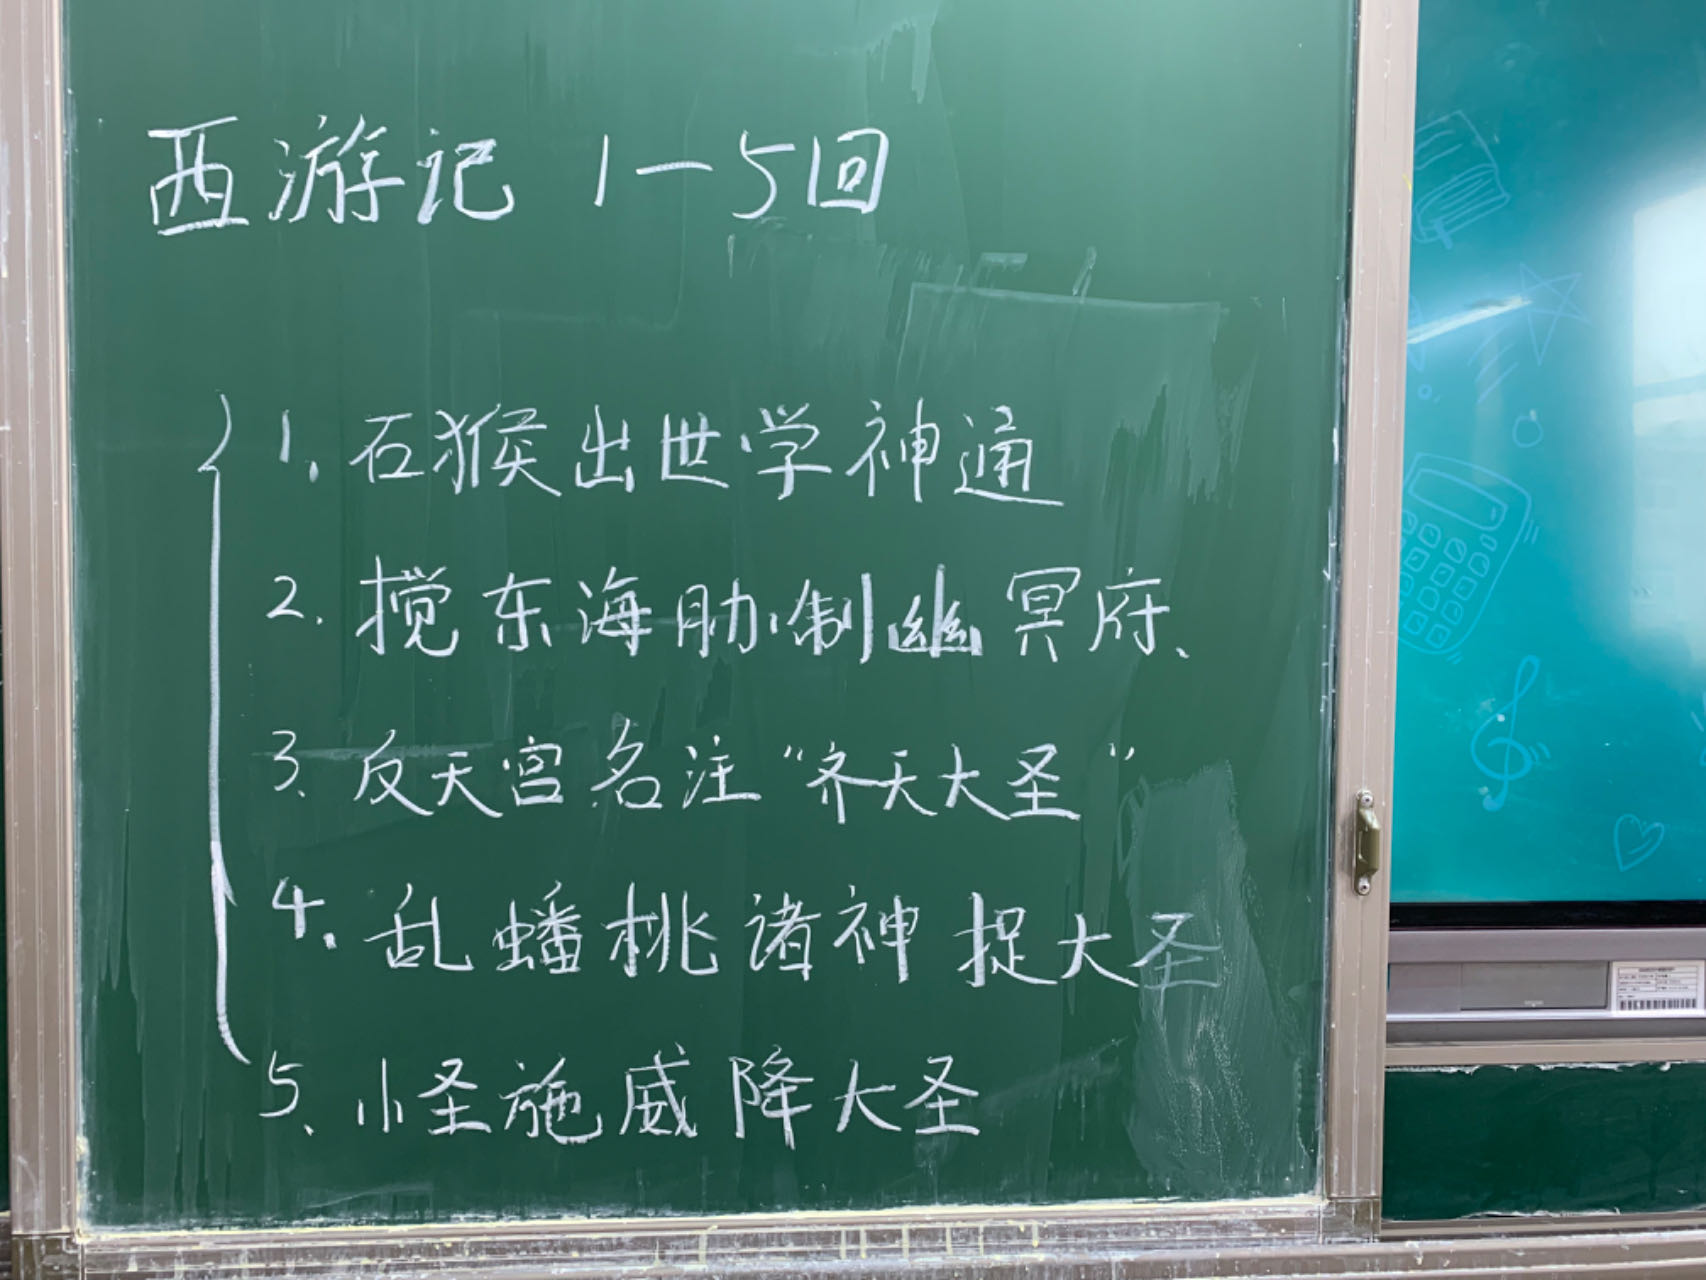 西游记 1—5回
1. 石猴出世学神通
2. 搅东海 制幽冥府、
3、反天宫名注“齐天大圣”
4. 乱蟠桃诸神捉大圣
5、小圣施威降大圣